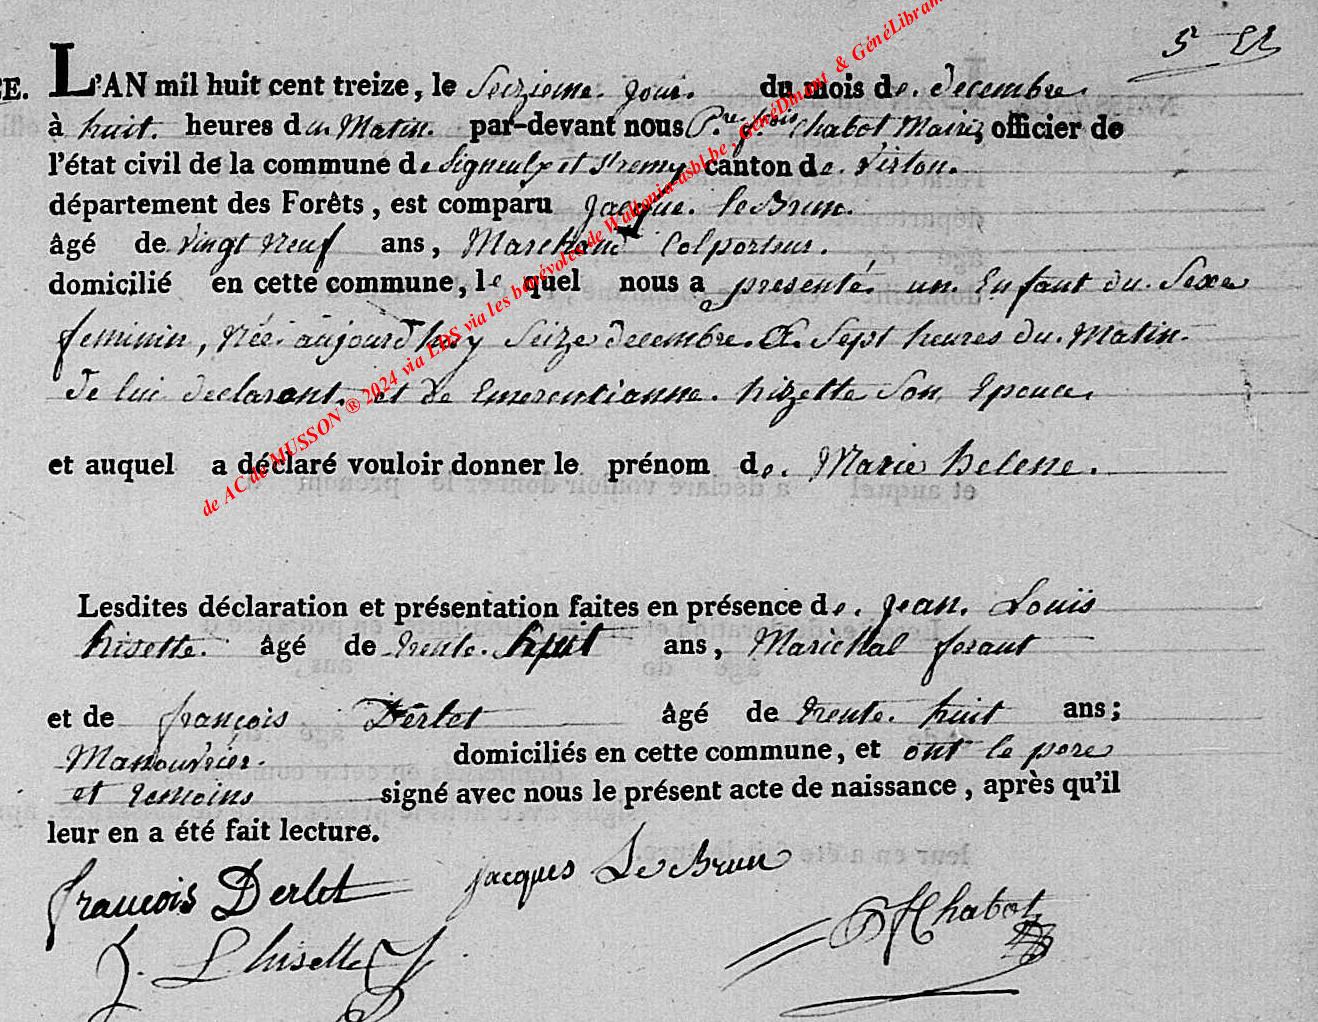 5 22
CE. L'AN mil huit cent treize, le Seizieme jour. du mois de. decembre.
à huit. heures du. Matin. par-devant nous P.re f.ois Chabot Maire, officier de
l'état civil de la commune de Signeulx et St remy canton de. Virton.
département des Forêts, est comparu Jacque. le Brun.
âgé de vingt neuf ans, Marchand Colporteur.
domicilié en cette commune, le quel nous a presenté, un. Enfant du. Sexe
feminin, Née. aujourd huy Seize decembre. a. Sept heures du. Matin.
De lui declarant. et de Emerentianne. hizette Son Epouce,
et auquel a déclaré vouloir donner le prénom de. Marie helene.
Lesdites déclaration et présentation faites en présence de. jean. Louis
hisette. âgé de trente. huit ans, Maréchal feraut
et de françois Derlet âgé de trente. huit ans;
Manouvrier. domiciliés en cette commune, et ont le pere
et temoins signé avec nous le présent acte de naissance, après qu'il
leur en a été fait lecture.
francois Derlet jacques Le Brun
Chabot
J. L hisette
de AC de MUSSON ® 2024 via EDS via les bénévoles de Wallonia-asbl.be, GénéDinant & GénéLibram